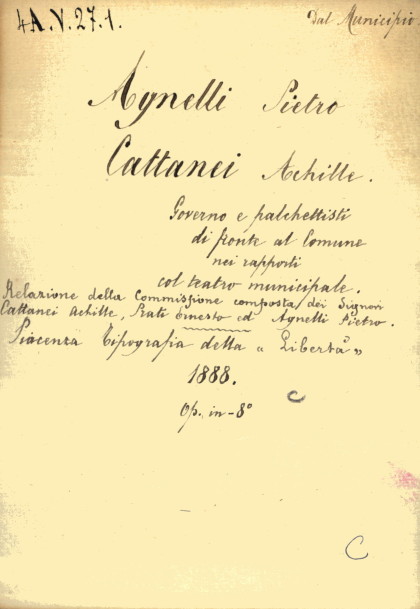 4A.V.27.1.
Dal Municipio
Agnelli Pietro
Cattanei Achille.
Governo e palchettisti
di fronte al Comune
nei rapporti
col teatro municipale.
Relazione della Commissione composta dei Signori
Cattanei Achille, Rati Ernesto ed Agnelli Pietro.
Piacenza Tipografia della "Libertà"
1888.
Op. in-8°
C
C